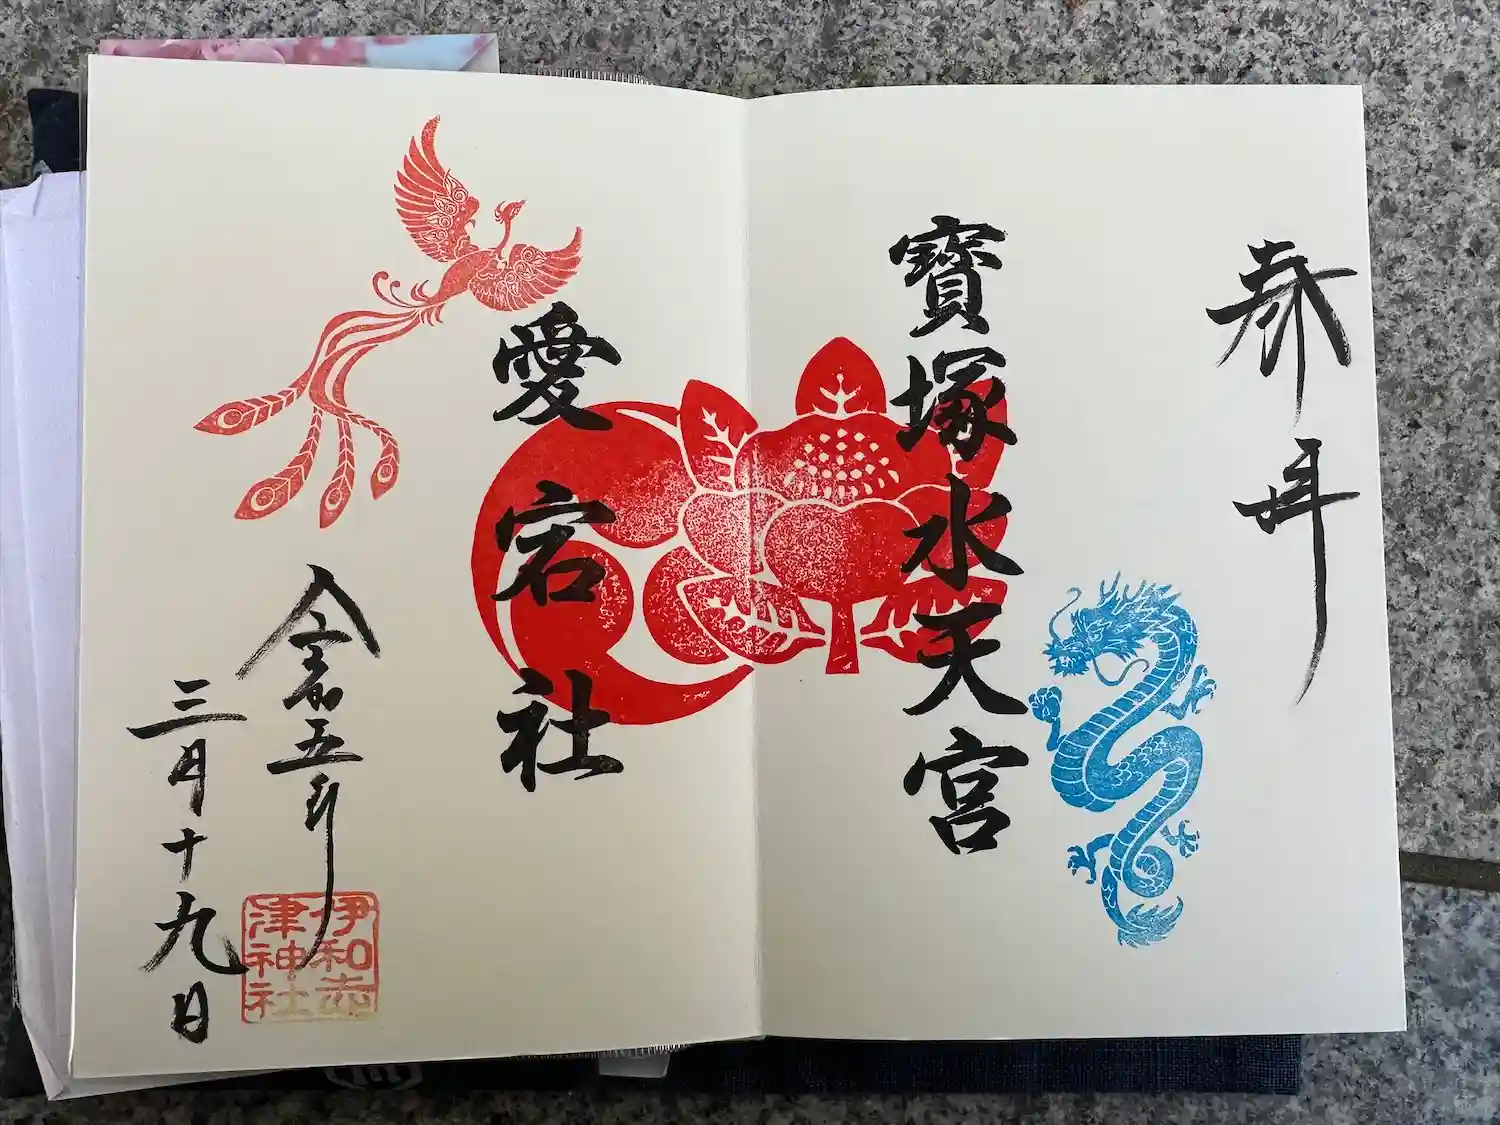 奉拝
寶塚水天宮
愛宕社
令和五年
三月十九日
伊和志
津神社